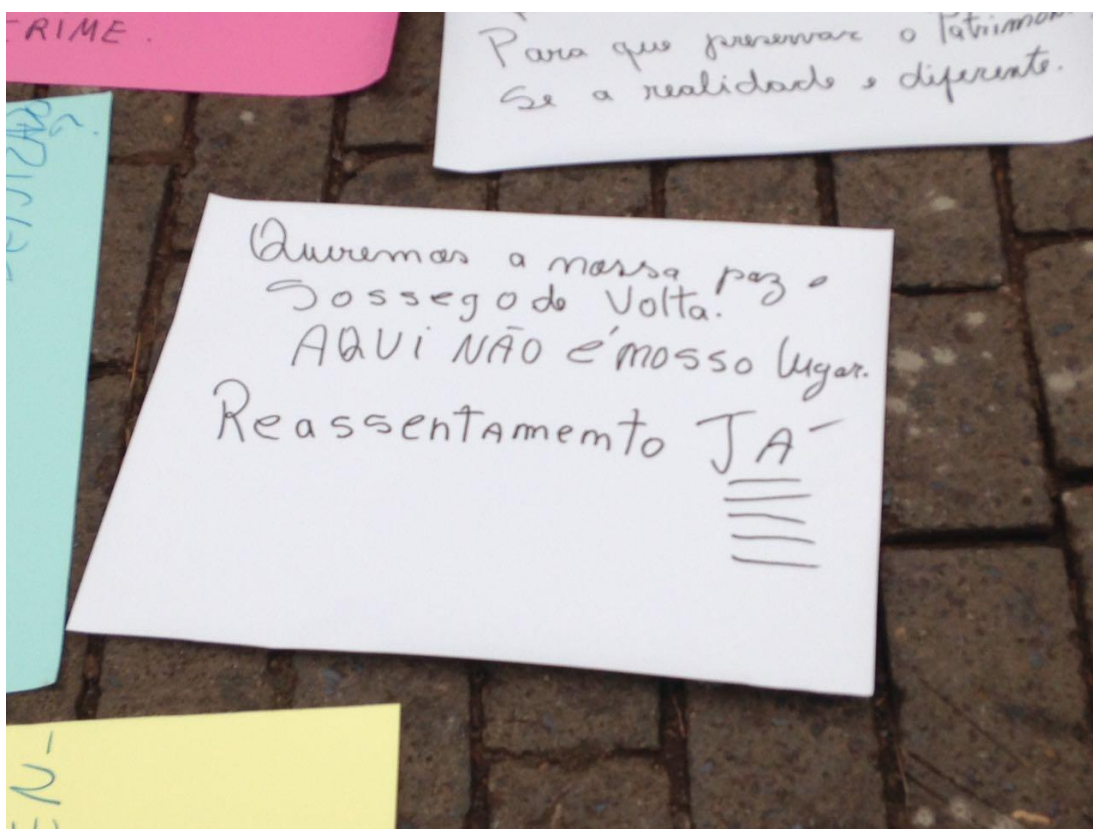 CRIME.
Para que preservar o
Se a realidade e diferente.
Queremos a nossa paz e
Sossego de Volta.
AQUi NÃO é nosso lugar.
ReassentAmento JÁ
EN-